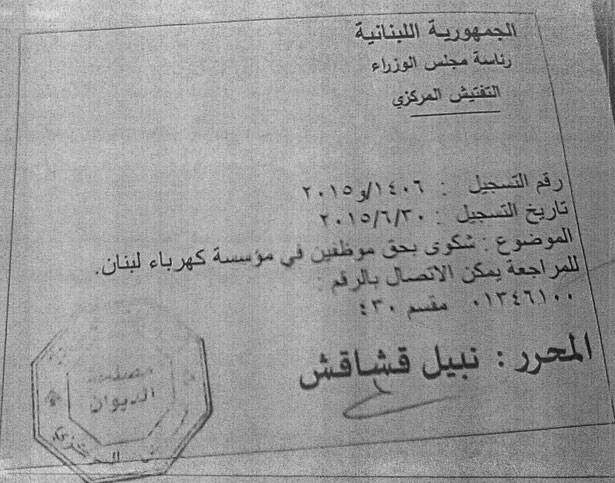 الجمهورية اللبنانية
رئاسة مجلس الوزراء
التفتيش المركزي
رقم التسجيل : ١٤٠٦/و٢٠١٥
تاريخ التسجيل : ٢٠١٥/٦/٣٠
الموضوع : شكوى بحق موظفين في مؤسسة كهرباء لبنان.
للمراجعة يمكن الاتصال بالرقم :
٠١٣٤٦١٠٠ مقسم ٤٣٠
المحرر : نبيل قشاقش
الديوان